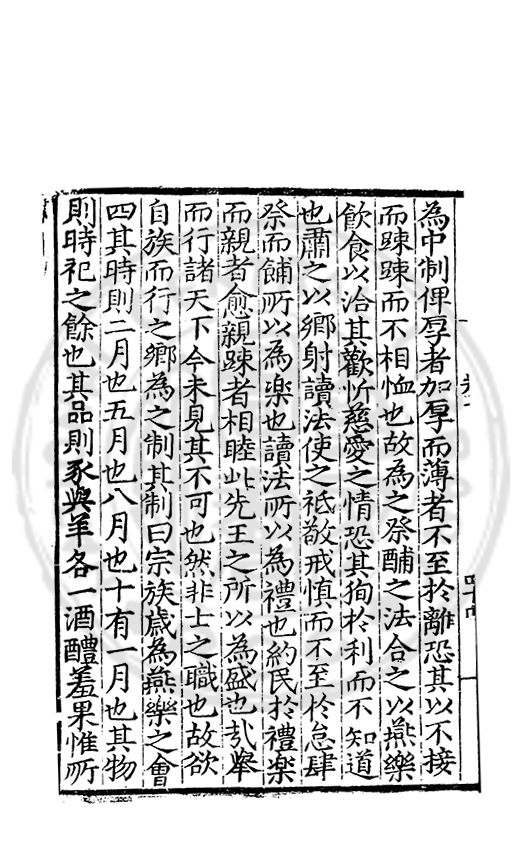 為中制俾厚者加厚而薄者不至於離恐其以不接
而踈踈而不相恤也故為之祭酺之法合之以燕樂
飲食以洽其歡忻慈愛之情恐其徇於利而不知道
也肅之以鄉射讀法使之祗敬戒慎而不至於怠肆
祭而餔所以為樂也讀法所以為禮也約民於禮樂
而親者愈親踈者相睦此先王之所以為盛也引舉
而行諸天下今未見其不可也然非士之職也故欲
自族而行之鄉為之制其制曰宗族歲為燕樂之會
四其時則二月也五月也八月也十有一月也其物
則時祀之餘也其品則豕與羊各一酒醴羞果惟所